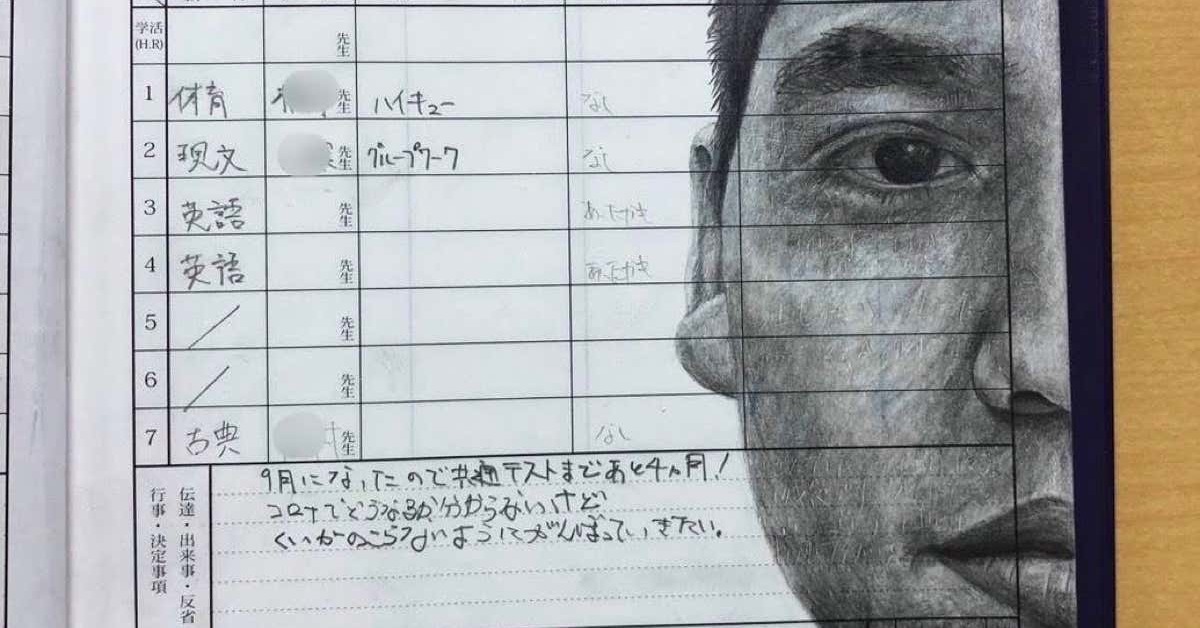 学活
(H.R) 先生
1 体育 先生 ハイキュー なし
2 現文 先生 グループワーク なし
3 英語 先生 あたたかき
4 英語 先生 あたたかき
5 / 先生
6 / 先生
7 古典 先生 なし
伝達・出来事・反省
行事・決定事項
9月になったので共通テストまであと4ヵ月!
コロナでどうなるか分からないけど
くいがのこらないようにがんばっていきたい。